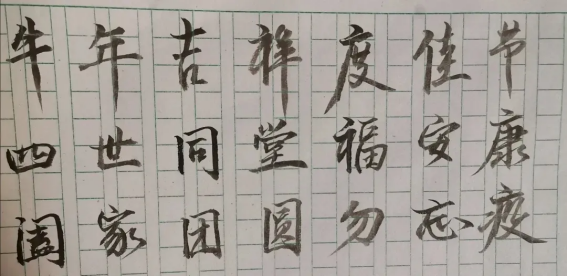 牛年吉祥度佳节
四世同堂福安康
阖家团圆勿忘疫